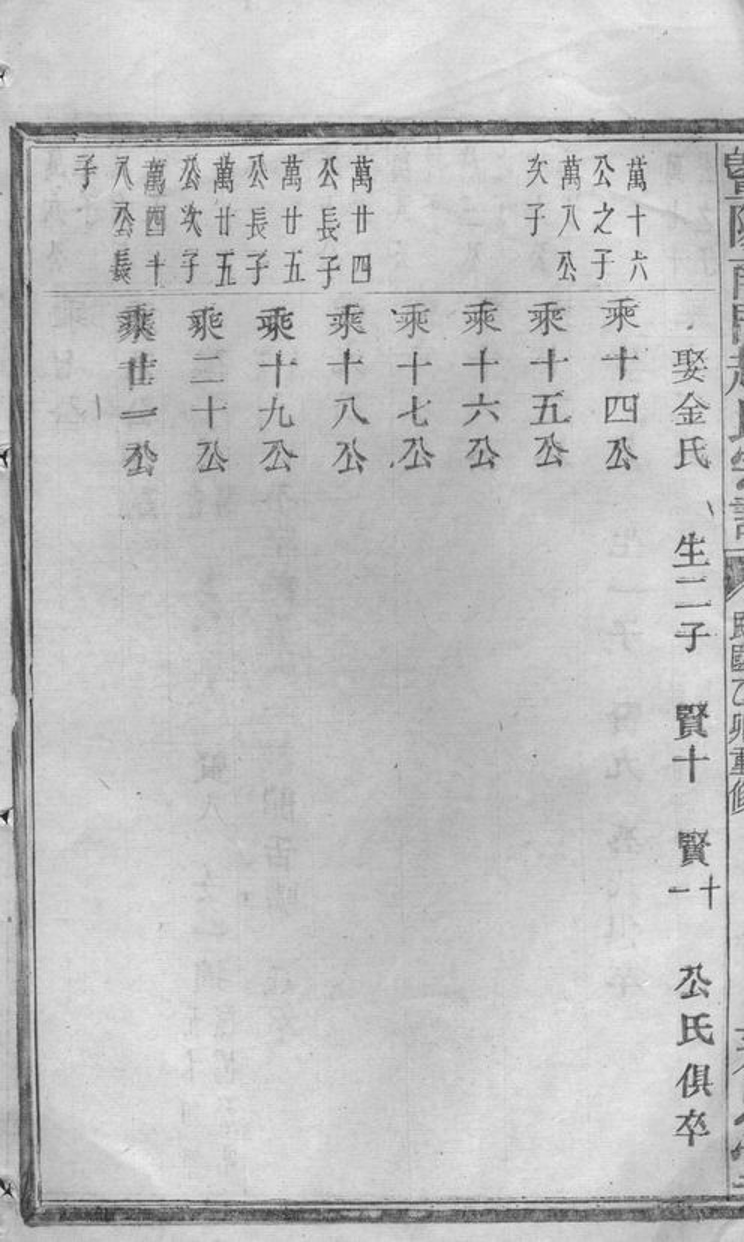 暨陽南門趙氏宗譜
民國乙卯重修
娶金氏 生二子 賢十 賢十一 公氏俱卒
萬十六公之子
乘十四公
萬八公次子
乘十五公
乘十六公
乘十七公
萬廿四公長子
乘十八公
萬廿五公長子
乘十九公
萬廿五公次子
乘二十公
萬四十八公長子
乘廿一公